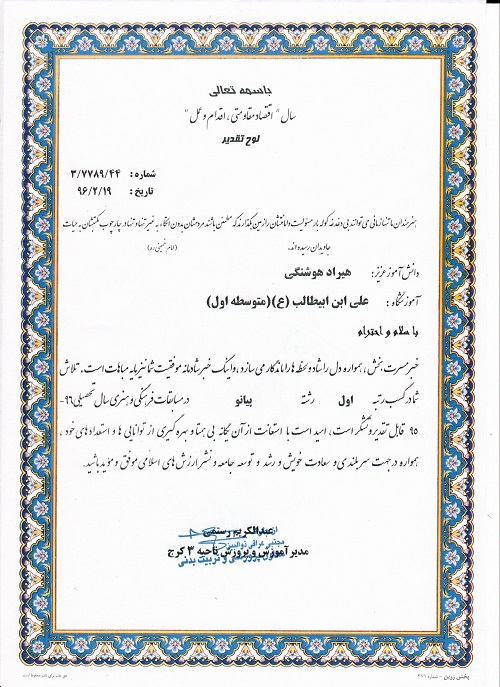 باسمه تعالی
سال " اقتصاد مقاومتی، اقدام و عمل "
لوح تقدیر
شماره : ۳/۷۷۸۹/۴۴
تاریخ : ۹۶/۲/۱۹
هنرمندان ما تنها زمانی می توانند بی دغدغه کوله بار مسئولیت و امانتشان را زمین بگذارند که مطمئن باشند مردمشان بدون اتکاء به غیر تنها و تنها در چارچوب مکتبشان به حیات
جاویدان رسیده اند. (امام خمینی ره)
دانش آموز عزیز: هیراد هوشنگی
آموزشگاه : علی ابن ابیطالب (ع)(متوسطه اول)
با سلام و احترام
خبر مسرت بخش، همواره دل را شاد و لحظه ها را ماندگار می سازد، و اینک خبر شادمانه موفقیت شما نیز مایه مباهات است. تلاش
شما در کسب رتبه اول رشته پیانو در مسابقات فرهنگی و هنری سال تحصیلی ۹۶-
۹۵ قابل تقدیر و تشکر است، امید است با استعانت از آن یگانه بی همتا و بهره گیری از توانایی ها و استعدادهای خود،
همواره در جهت سربلندی و سعادت خویش و رشد و توسعه جامعه و نشر ارزش های اسلامی موفق و موید باشید.
عبدالکریم رستمی
مدیر آموزش و پرورش ناحیه ۳ کرج
پخش زرین - شماره ۳۷۱